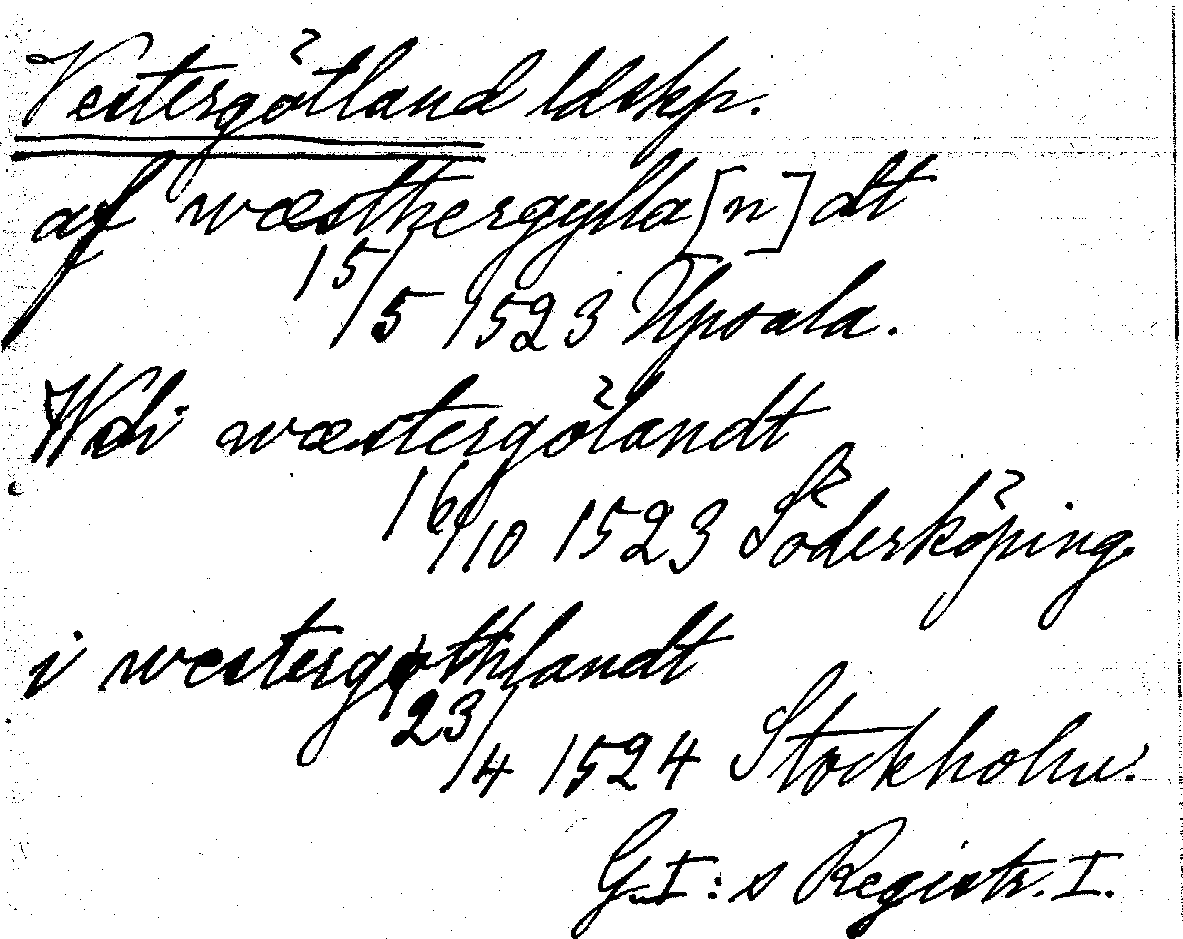 Vestergötland ldskp.
af wæsthergylla[n]dt
15/5 1523 Upsala.
Wdi wæstergölandt
16/10 1523 Söderköping.
i westergøthlandt
23/4 1524 Stockholm.
G.I:s Registr. I.